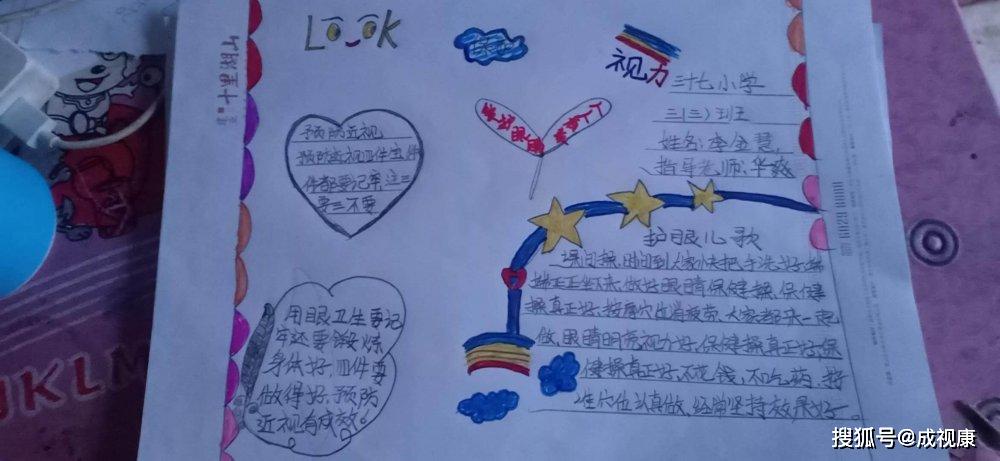 Look
视力
三十七小学
三(三)班
姓名:李金慧
指导老师:华
预防近视
预防近视四件宝,件
件都要记牢,这三
要三不要
护眼儿歌
课间操,时间到大家快把手洗好端
端正正坐下来,做好眼睛保健操,保健
操真正好,按摩穴位消疲劳,大家都来一起
做,眼睛明亮视力好,保健操真正好,保
健操真正好,不花钱,不吃药,按
准穴位认真做,经常坚持效果好
用眼卫生要记
牢还要锻炼
身体好,四件要
做得好,预防
近视有成效。
JKLM
搜狐号@成视康